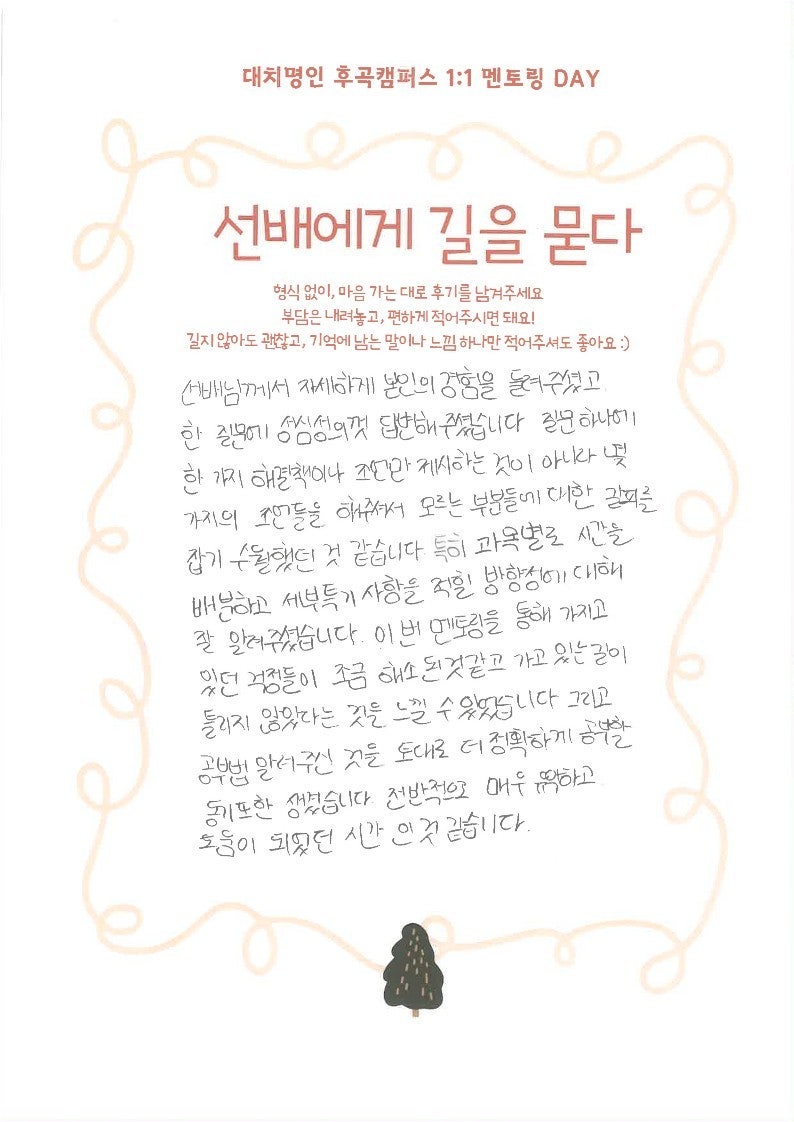 대치명인 후곡캠퍼스 1:1 멘토링 DAY
선배에게 길을 묻다
형식 없이, 마음 가는 대로 후기를 남겨주세요
부담은 내려놓고, 편하게 적어주시면 돼요!
길지 않아도 괜찮고, 기억에 남는 말이나 느낌 하나만 적어주셔도 좋아요 :)
선배님께서 자세하게 본인의 경험을 들려주셨고
한 질문에 성심성의껏 답변해주셨습니다 질문 하나에
한 가지 해결책이나 조언만 제시하는 것이 아니라 몇
가지의 조언들을 해주셔서 모르는 부분들에 대한 갈피를
잡기 수월했던 것 같습니다 특히 과목별로 시간을
배분하고 세부특기 사항을 적힐 방향성에 대해
잘 알려주셨습니다. 이번 멘토링을 통해 가지고
있던 걱정들이 조금 해소 된것같고 가고 있는길이
틀리지 않았다는 것을 느낄 수있었습니다 그리고
공부법 알려주신 것을 토대로 더 정확하게 공부할
동기또한 생겼습니다 전반적으로 매우 하고
도움이 되었던 시간 인것 같습니다.